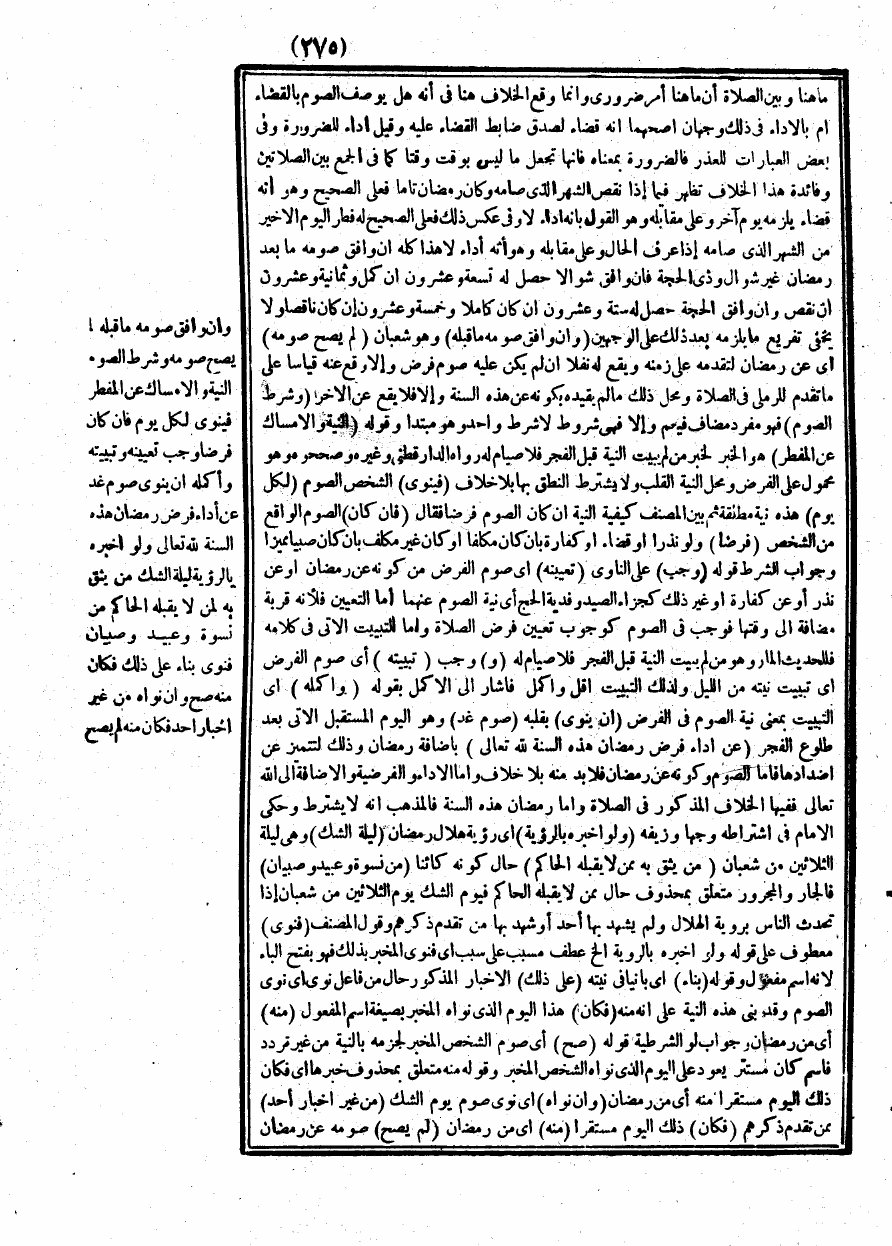 (٢٧٥)
ماهنا وبين الصلاة أن ماهنا أمر ضرورى وانما وقع الخلاف هنا فى أنه هل يوصف الصوم بالقضاء
ام بالاداء فى ذلك وجهان اصحهما انه قضاء لصدق ضابط القضاء عليه وقيل اداء للضرورة وفى
بعض العبارات للعذر فالضرورة بمعناه فانها تجعل ما ليس بوقت وقتا كما فى الجمع بين الصلاتين
وفائدة هذا الخلاف تظهر فيما إذا نقص الشهر الذى صامه وكان رمضان تاما فعلى الصحيح وهو أنه
قضاء يلزمه يوم آخر وعلى مقابله وهو القول بانه اداء لا وفى عكس ذلك فعلى الصحيح له فطر اليوم الاخير
من الشهر الذى صامه إذا عرف الحال وعلى مقابله وهو أنه أداء لا هذا كله ان وافق صومه ما بعد
رمضان غير شوال وذى الحجة فان وافق شوالا حصل له تسعة وعشرون ان كمل وثمانية وعشرون
ان نقص وان وافق الحجة حصل له ستة وعشرون ان كان كاملا وخمسة وعشرون إن كان ناقصا ولا
يخفى تفريع ما يلزمه بعد ذلك على الوجهين (وان وافق صومه ماقبله) وهو شعبان (لم يصح صومه)
اى عن رمضان لتقدمه على زمنه ويقع له نفلا ان لم يكن عليه صوم فرض وإلا وقع عنه قياسا على
ماتقدم للرملى فى الصلاة ومحل ذلك مالم يقيده بكونه عن هذه السنة وإلا فلا يقع عن الاخر (وشرط
الصوم) فهو مفرد مضاف فيعم وإلا فهى شروط لا شرط واحد وهو مبتدا وقوله (النية والامساك
عن المفطر) هو الخبر لخبر من لم يبيت النية قبل الفجر فلا صيام له رواه الدارقطنى وغيره وصححوه وهو
محمول على الفرض ومحل النية القلب ولا يشترط النطق بها بلا خلاف (فينوى) الشخص الصوم (لكل
يوم) هذه نية مطلقة ثم بين المصنف كيفية النية ان كان الصوم فرضا فقال (فان كان) الصوم الواقع
من الشخص (فرضا) ولو نذرا او قضاء او كفارة بان كان مكلفا او كان غير مكلف بان كان صبيا مميزا
وجواب الشرط قوله (وجب) على الناوى (تعيينه) اى صوم الفرض من كونه عن رمضان او عن
نذر أو عن كفارة او غير ذلك كجزاء الصيد وفدية الحج أى نية الصوم عنهما أما التعيين فلأنه قربة
مضافة الى وقتها فوجب فى الصوم كوجوب تعيين فرض الصلاة واما التبييت الاتى فى كلامه
فللحديث المار وهو من لم يبيت النية قبل الفجر فلا صيام له (و) وجب (تبييته) أى صوم الفرض
اى تبييت نيته من الليل ولذلك التبييت اقل واكمل فاشار الى الاكمل بقوله (واكمله) اى
التبييت بمعنى نية الصوم فى الفرض (ان ينوى) بقلبه (صوم غد) وهو اليوم المستقبل الاتى بعد
طلوع الفجر (عن اداء فرض رمضان هذه السنة لله تعالى) باضافة رمضان وذلك لتتميز عن
اضدادها فاما الصوم وكونه عن رمضان فلا بد منه بلا خلاف واما الاداء والفرضية والاضافة الى الله
تعالى ففيها الخلاف المذكور فى الصلاة واما رمضان هذه السنة فالمذهب انه لا يشترط وحكى
الامام فى اشتراطه وجها وزيفه (ولو اخبره بالرؤية) اى رؤية هلال رمضان (ليلة الشك) وهى ليلة
الثلاثين من شعبان (من يثق به ممن لا يقبله الحاكم) حال كونه كائنا (من نسوة وعبيد وصبيان)
فالجار والمجرور متعلق بمحذوف حال ممن لا يقبله الحاكم فيوم الشك يوم الثلاثين من شعبان إذا
تحدث الناس بروية الهلال ولم يشهد بها أحد أو شهد بها من تقدم ذكرهم وقول المصنف (فنوى)
معطوف على قوله ولو اخبره بالروية الخ عطف مسبب على سبب اى فنوى المخبر بذلك فهو بفتح الباء
لانه اسم مفعول وقوله (بناء) اى بانيا فى نيته (على ذلك) الاخبار المذكور حال من فاعل نوى اى نوى
الصوم وقد بنى هذه النية على انه منه (فكان) هذا اليوم الذى نواه المخبر بصيغة اسم المفعول (منه)
أى من رمضان وجواب لو الشرطية قوله (صح) أى صوم الشخص المخبر لجزمه بالنية من غير تردد
فاسم كان مستتر يعود على اليوم الذى نواه الشخص المخبر وقوله منه متعلق بمحذوف خبرها اى فكان
ذلك اليوم مستقرا منه أى من رمضان (وان نواه) اى نوى صوم يوم الشك (من غير اخبار أحد)
ممن تقدم ذكرهم (فكان) ذلك اليوم مستقرا (منه) اى من رمضان (لم يصح) صومه عن رمضان
وان وافق صومه ماقبله لم
يصح صومه وشرط الصوم
النية والامساك عن المفطر
فينوى لكل يوم فان كان
فرضا وجب تعيينه وتبييته
وأكمله ان ينوى صوم غد
عن أداء فرض رمضان هذه
السنة لله تعالى ولو اخبره
بالرؤية ليلة الشك من يثق
به لمن لا يقبله الحاكم من
نسوة وعبيد وصبيان
فنوى بناء على ذلك فكان
منه صح وان نواه من غير
اخبار احد فكان منه لم يصح